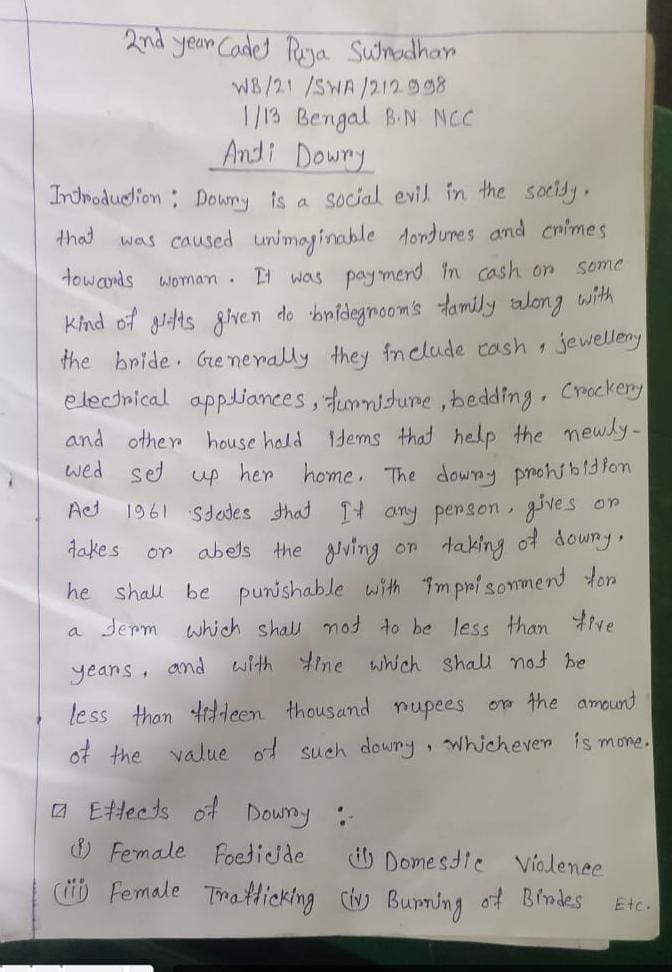 2nd year Cadet Puja Sutradhar
WB/21/SWA/212998
1/13 Bengal B.N NCC
Anti Dowry
Introduction : Dowry is a social evil in the socity.
that was caused unimaginable tortures and crimes
towards woman. It was payment in cash or some
kind of gifts given to bridegroom's family along with
the bride. Generally they include cash, jewellery
electrical appliances, furniture, bedding, Crockery
and other house hald items that help the newly-
wed set up her home. The dowry prohibition
Act 1961 states that If any person, gives or
takes or abets the giving or taking of dowry,
he shall be punishable with imprisonment for
a term which shall not to be less than five
years, and with fine which shall not be
less than fifteen thousand rupees or the amount
of the value of such dowry, whichever is more.
Effects of Dowry :-
(i) Female Foeticide (ii) Domestic Violence
(iii) Female Trafficking (iv) Burning of Birdes Etc.